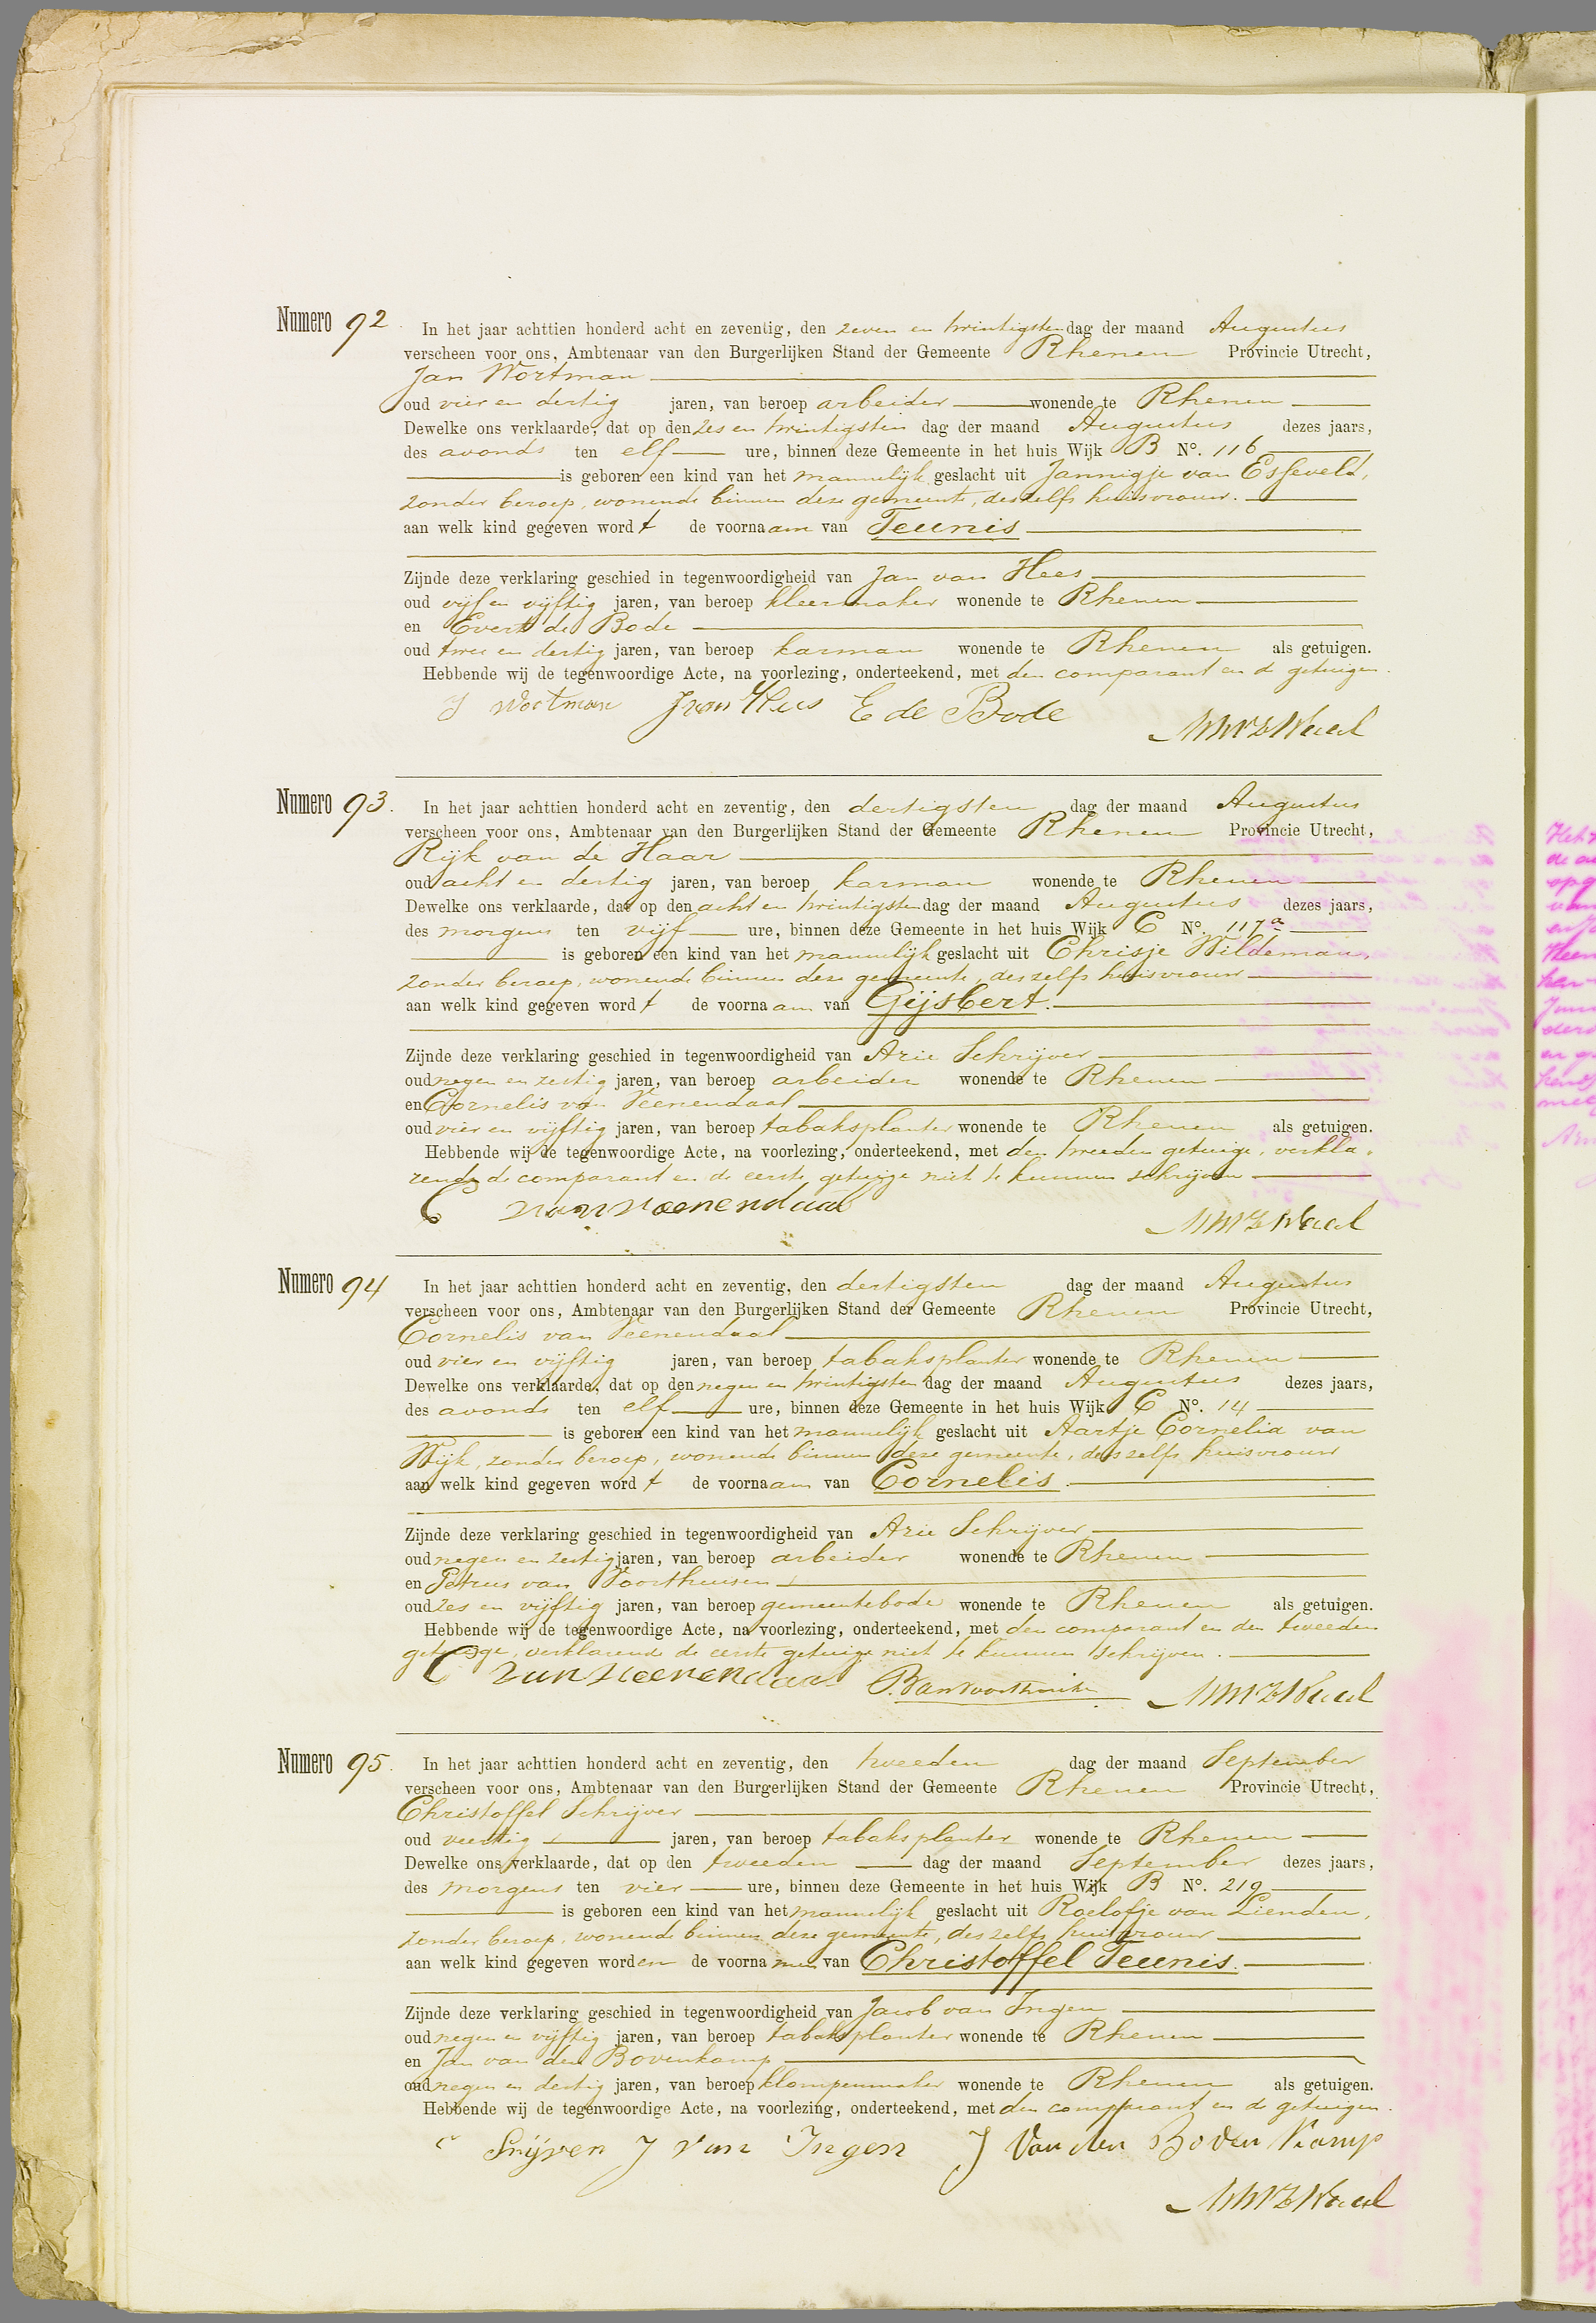 Numero 92. In het jaar achttien honderd acht en zeventig, den zeven en twintigsten dag der maand Augustus
verscheen voor ons, Ambtenaar van den Burgerlijken Stand der Gemeente Rhenen Provincie Utrecht,
Jan Wortman
oud vier en dertig jaren, van beroep arbeider wonende te Rhenen
Dewelke ons verklaarde, dat op den zes en twintigsten dag der maand Augustus dezes jaars,
des avonds ten elf ure, binnen deze Gemeente in het huis Wijk B No. 116
is geboren een kind van het mannelijk geslacht uit Jannigje van Esseveld,
zonder beroep, wonende binnen deze gemeente, deszelfs huisvrouw.
aan welk kind gegeven wordt de voornaam van Teunis
Zijnde deze verklaring geschied in tegenwoordigheid van Jan van Hees
oud vijf en vijftig jaren, van beroep kleermaker wonende te Rhenen
en Evert de Bode
oud twee en dertig jaren, van beroep karman wonende te Rhenen als getuigen.
Hebbende wij de tegenwoordige Acte, na voorlezing, onderteekend, met den comparant en de getuigen.
J Wortman J van Hees E de Bode
Numero 93. In het jaar achttien honderd acht en zeventig, den dertigsten dag der maand Augustus
verscheen voor ons, Ambtenaar van den Burgerlijken Stand der Gemeente Rhenen Provincie Utrecht,
Rijk van de Haar
oud acht en dertig jaren, van beroep karman wonende te Rhenen
Dewelke ons verklaarde, dat op den acht en twintigsten dag der maand Augustus dezes jaars,
des morgens ten vijf ure, binnen deze Gemeente in het huis Wijk C No. 117a
is geboren een kind van het mannelijk geslacht uit Chrisje Wildeman,
zonder beroep, wonende binnen deze gemeente, deszelfs huisvrouw
aan welk kind gegeven wordt de voornaam van Gijsbert.
Zijnde deze verklaring geschied in tegenwoordigheid van Arie Schrijver
oud negen en zestig jaren, van beroep arbeider wonende te Rhenen
en Cornelis van Veenendaal
oud vier en vijftig jaren, van beroep tabaksplanter wonende te Rhenen als getuigen.
Hebbende wij de tegenwoordige Acte, na voorlezing, onderteekend, met den tweeden getuige, verkla-
rende de comparant en de eerste getuige niet te kunnen schrijven
C van veenendaal
Numero 94 In het jaar achttien honderd acht en zeventig, den dertigsten dag der maand Augustus
verscheen voor ons, Ambtenaar van den Burgerlijken Stand der Gemeente Rhenen Provincie Utrecht,
Cornelis van Veenendaal
oud vier en vijftig jaren, van beroep tabaksplanter wonende te Rhenen
Dewelke ons verklaarde, dat op den negen en twintigsten dag der maand Augustus dezes jaars,
des avonds ten elf ure, binnen deze Gemeente in het huis Wijk C No. 14
is geboren een kind van het mannelijk geslacht uit Aartje Cornelia van
Wijk, zonder beroep, wonende binnen deze gemeente, deszelfs huisvrouw
aan welk kind gegeven wordt de voornaam van Cornelis.
Zijnde deze verklaring geschied in tegenwoordigheid van Arie Schrijver
oud negen en zestig jaren, van beroep arbeider wonende te Rhenen
en Petrus van Voorthuisen
oud zes en vijftig jaren, van beroep gemeentebode wonende te Rhenen als getuigen.
Hebbende wij de tegenwoordige Acte, na voorlezing, onderteekend, met den comparant en den tweeden
getuige, verklarende de eerste getuige niet te kunnen schrijven.
C van veenendaal
Numero 95. In het jaar achttien honderd acht en zeventig, den tweeden dag der maand September
verscheen voor ons, Ambtenaar van den Burgerlijken Stand der Gemeente Rhenen Provincie Utrecht,
Christoffel Schrijver
oud veertig jaren, van beroep tabaksplanter wonende te Rhenen
Dewelke ons verklaarde, dat op den tweeden dag der maand September dezes jaars,
des morgens ten vier ure, binnen deze Gemeente in het huis Wijk B No. 219
is geboren een kind van het mannelijk geslacht uit Roelofje van Lienden,
zonder beroep, wonende binnen deze gemeente, deszelfs huisvrouw
aan welk kind gegeven worden de voornamen van Christoffel Teunis.
Zijnde deze verklaring geschied in tegenwoordigheid van Jacob van Ingen
oud negen en vijftig jaren, van beroep tabaksplanter wonende te Rhenen
en Jan van den Bovenkamp
oud negen en dertig jaren, van beroep klompenmaker wonende te Rhenen als getuigen.
Hebbende wij de tegenwoordige Acte, na voorlezing, onderteekend, met den comparant en de getuigen.
J van Ingen J Van den Boven Kamp